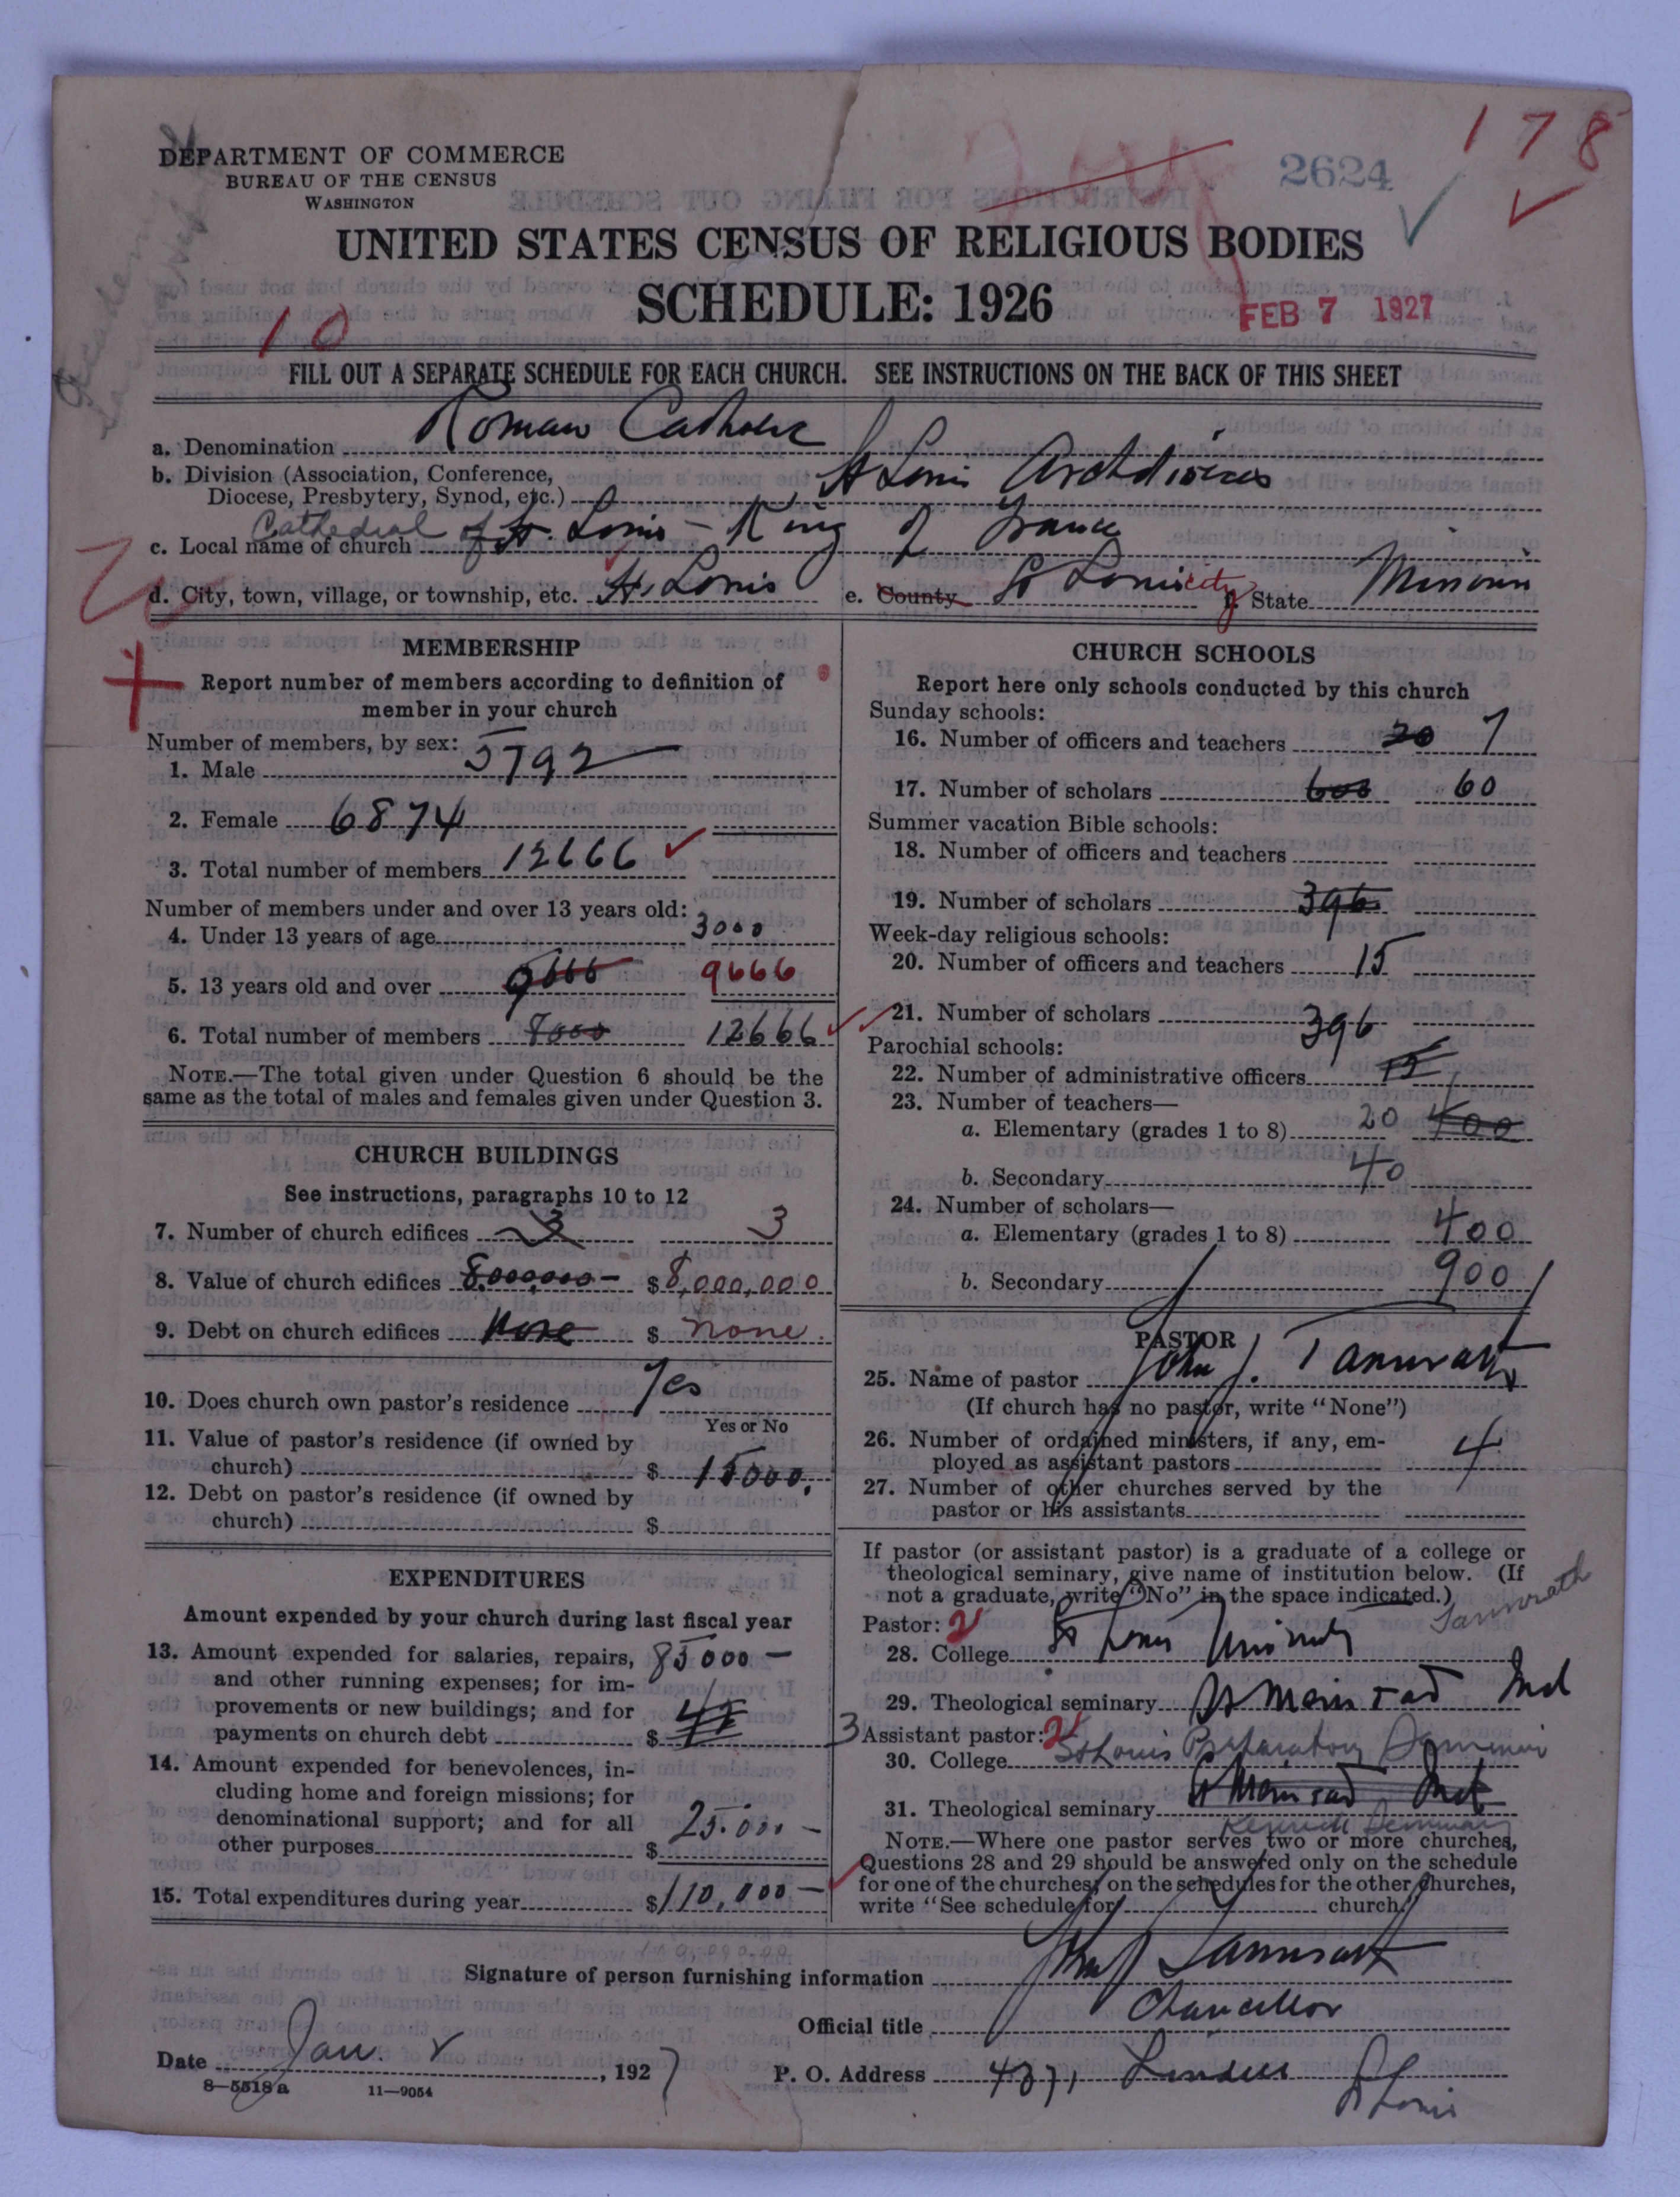 178
2624
DEPARTMENT OF COMMERCE
BUREAU OF THE CENSUS
WASHINGTON
UNITED STATES CENSUS OF RELIGIOUS BODIES
SCHEDULE: 1926
FEB 7 1927
10
FILL OUT A SEPARATE SCHEDULE FOR EACH CHURCH. SEE INSTRUCTIONS ON THE BACK OF THIS SHEET
a. Denomination Roman Catholic
b. Division (Association, Conference,
Diocese, Presbytery, Synod, etc.) St Louis Archdiocese
c. Local name of church Cathedral of St. Louis - King of France
d. City, town, village, or township, etc. St. Louis e. County St Louis city f. State Missouri
MEMBERSHIP
Report number of members according to definition of
member in your church
Number of members, by sex:
1. Male 5792
2. Female 6874
3. Total number of members 12666
Number of members under and over 13 years old:
4. Under 13 years of age 3000
5. 13 years old and over 9666 9666
6. Total number of members 8000 12666
NOTE.—The total given under Question 6 should be the
same as the total of males and females given under Question 3.
CHURCH BUILDINGS
See instructions, paragraphs 10 to 12
7. Number of church edifices 3 3
8. Value of church edifices 8,000,000- $8,000,000
9. Debt on church edifices None $ None.
10. Does church own pastor's residence Yes
Yes or No
11. Value of pastor's residence (if owned by
church) $ 15000.
12. Debt on pastor's residence (if owned by
church) $
EXPENDITURES
Amount expended by your church during last fiscal year
13. Amount expended for salaries, repairs, 85000-
and other running expenses; for im-
provements or new buildings; and for
payments on church debt $
14. Amount expended for benevolences, in-
cluding home and foreign missions; for
denominational support; and for all
other purposes $ 25.000-
15. Total expenditures during year $110,000-
CHURCH SCHOOLS
Report here only schools conducted by this church
Sunday schools:
16. Number of officers and teachers 20 7
17. Number of scholars 600 60
Summer vacation Bible schools:
18. Number of officers and teachers
19. Number of scholars 396
Week-day religious schools:
20. Number of officers and teachers 15
21. Number of scholars 396
Parochial schools:
22. Number of administrative officers 15
23. Number of teachers—
a. Elementary (grades 1 to 8) 20 400
b. Secondary 40
24. Number of scholars—
a. Elementary (grades 1 to 8) 400
b. Secondary 900
PASTOR
25. Name of pastor John J. Tannrath
(If church has no pastor, write "None")
26. Number of ordained ministers, if any, em-
ployed as assistant pastors 4
27. Number of other churches served by the
pastor or his assistants
If pastor (or assistant pastor) is a graduate of a college or
theological seminary, give name of institution below. (If
not a graduate, write "No" in the space indicated.)
Tannrath
Pastor: 2
28. College St Louis University
29. Theological seminary St Meinrad Ind
3 Assistant pastor: 2
30. College St Louis Preparatory Seminary
31. Theological seminary St Meinrad Ind
Kenrick Seminary
NOTE.—Where one pastor serves two or more churches,
Questions 28 and 29 should be answered only on the schedule
for one of the churches; on the schedules for the other churches,
write "See schedule for church."
Signature of person furnishing information John J Tannrath
Official title Chancellor
Date Jan. , 1927 P. O. Address Lindell St Louis
8—5518 a 11—9054